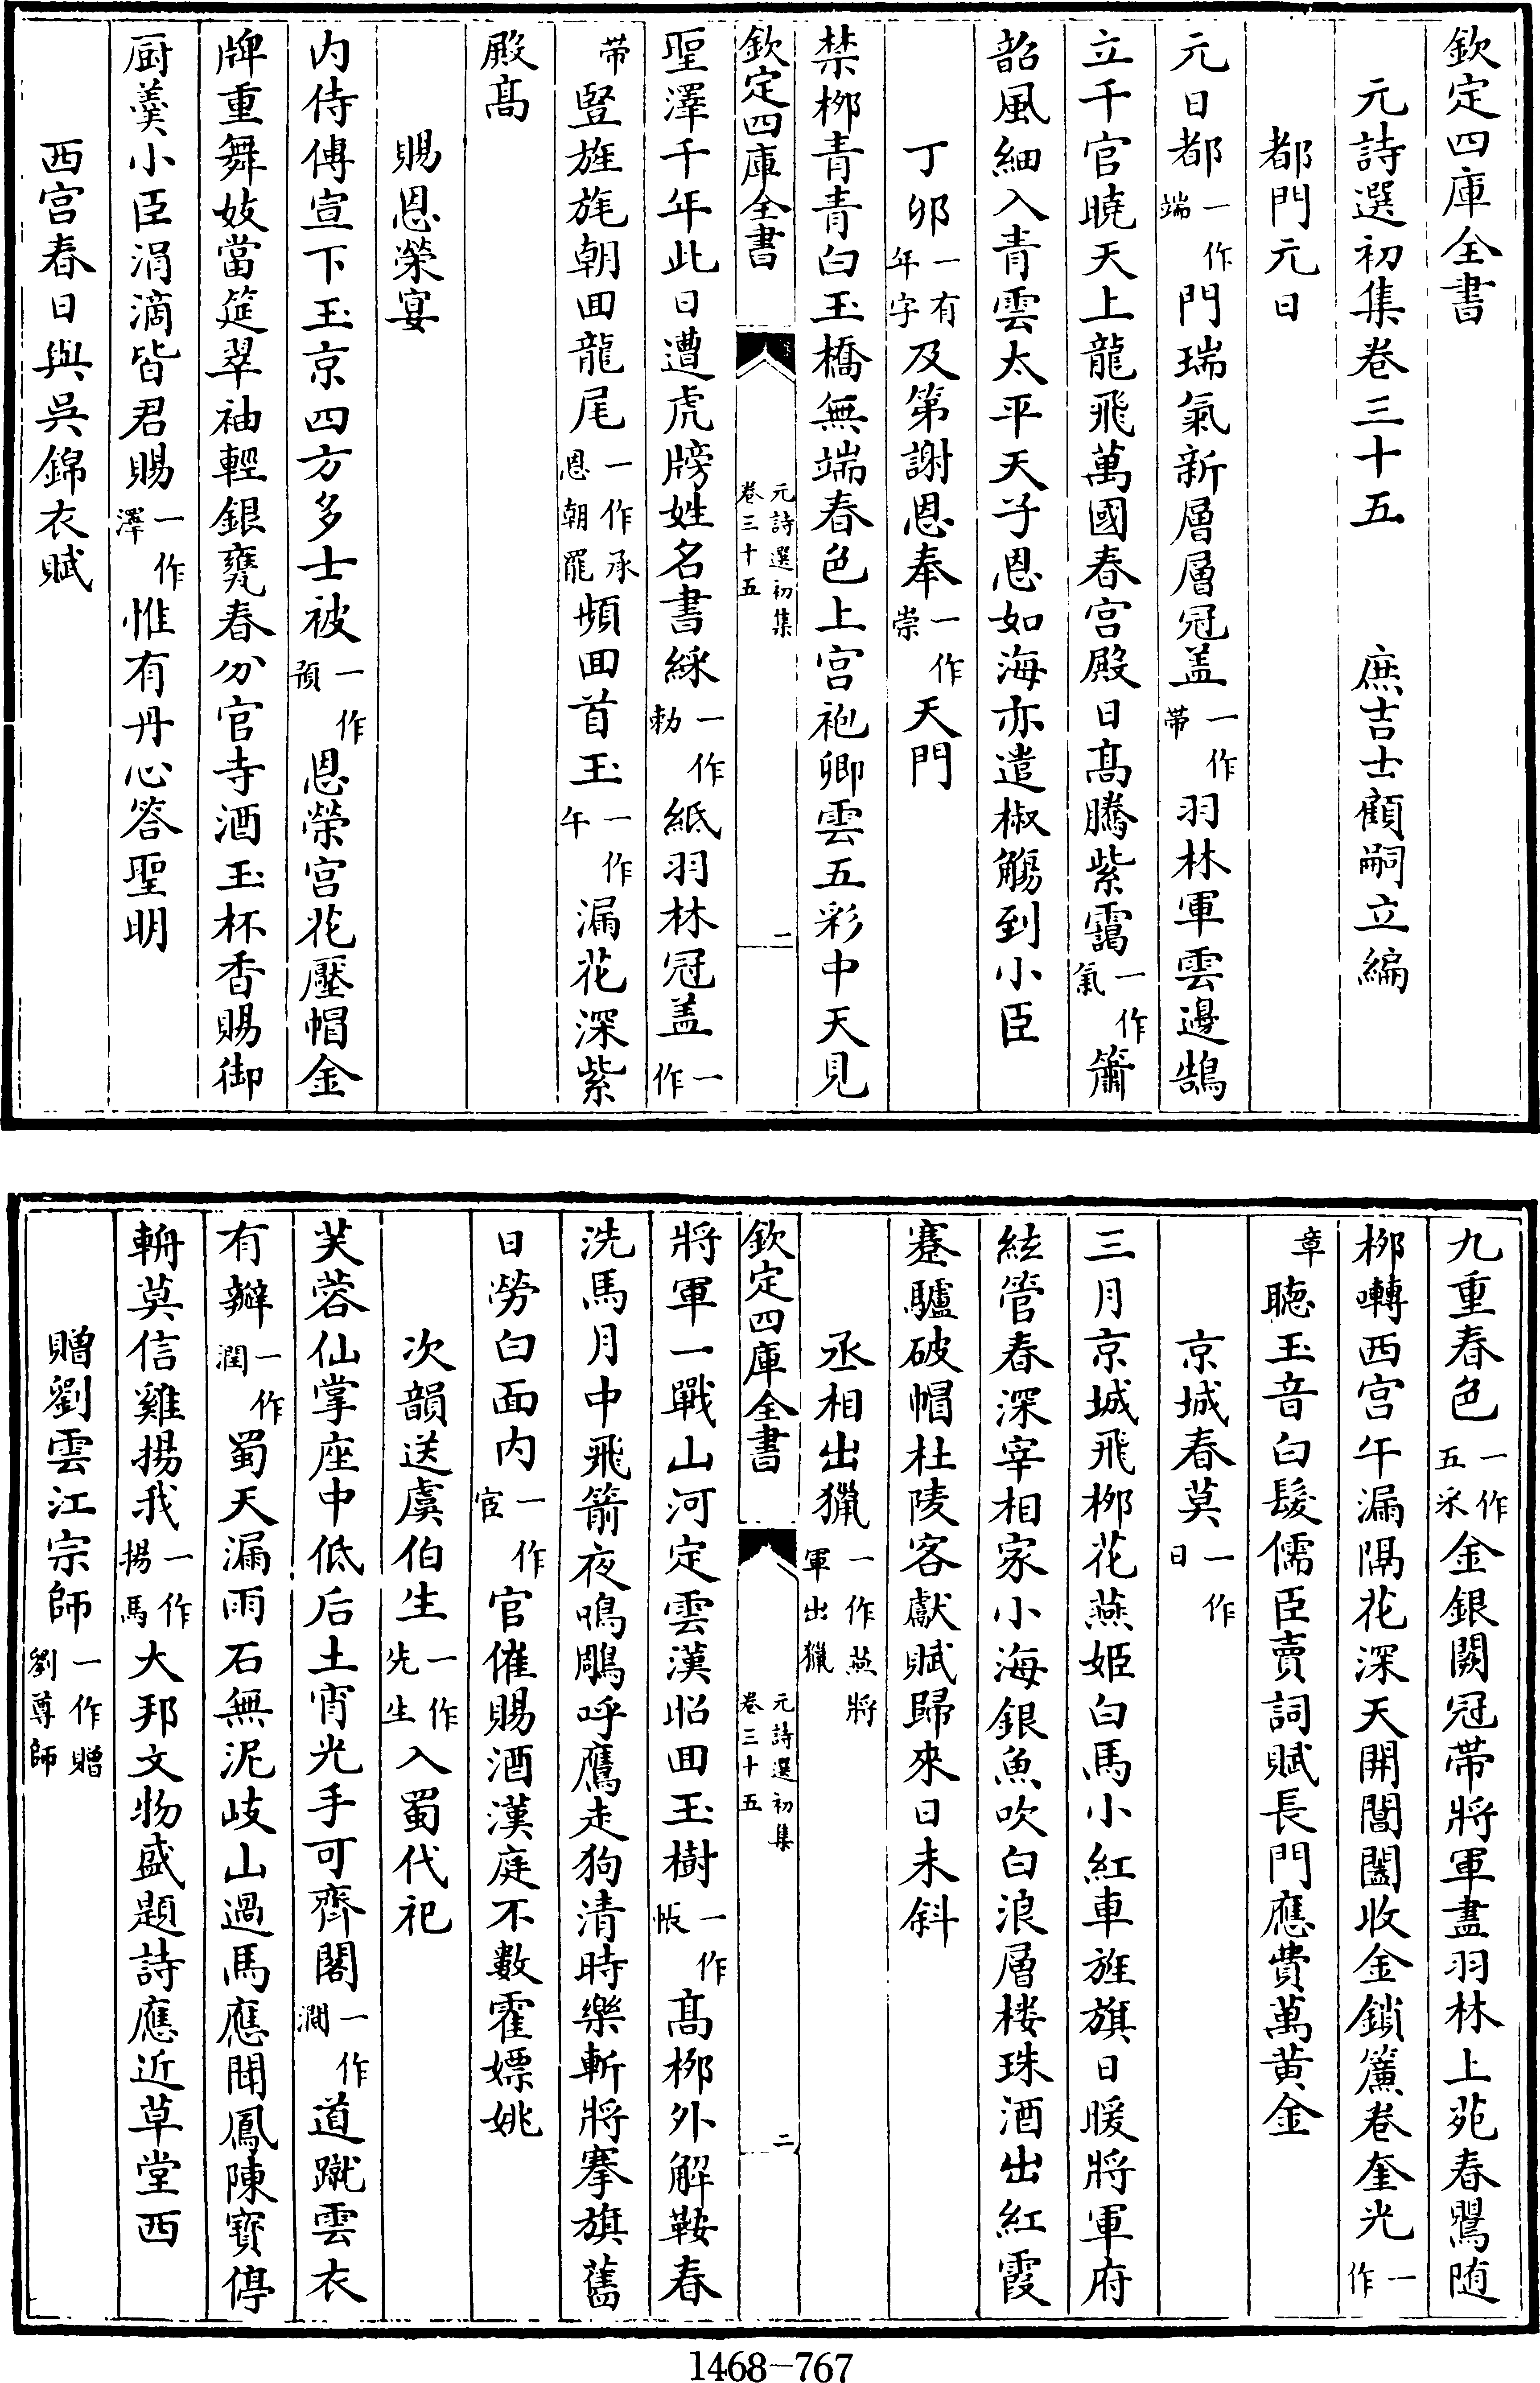 欽定四庫全書
元詩選初集卷三十五　庶吉士顧嗣立編
都門元日
元日都一作端門瑞氣新層層冠盖一作帶羽林軍雲邊鵠
立千官曉天上龍飛萬國春宫殿日髙騰紫靄一作氣簫
韶風細入青雲太平天子恩如海亦遣椒觴到小臣
丁卯一有年字及第謝恩奉一作崇天門
禁栁青青白玉橋無端春色上宫袍卿雲五彩中天見
欽定四庫全書　元詩選初集卷三十五　二
聖澤千年此日遭虎牓姓名書綵一作勅紙羽林冠盖一作
帶豎旌旄朝囬龍尾一作承恩朝罷頻囬首玉一作午漏花深紫
殿髙
賜恩榮宴
内侍傳宣下玉京四方多士被一作預恩榮宫花壓帽金
牌重舞妓當筵翠袖輕銀甕春分官寺酒玉杯香賜御
厨羮小臣涓滴皆君賜一作澤惟有丹心答聖明
西宫春日與吳錦衣賦
九重春色一作五采金銀闕冠帶將軍盡羽林上苑春鶯随
栁囀西宫午漏隔花深天開閶闔收金鎖簾卷奎光一作
章聴玉音白髮儒臣賣詞賦長門應費萬黄金
京城春莫一作日
三月京城飛栁花燕姬白馬小紅車旌旗日暖將軍府
絃管春深宰相家小海銀魚吹白浪層楼珠酒出紅霞
蹇驢破帽杜陵客獻賦歸來日未斜
丞相出獵一作燕將軍出獵
欽定四庫全書　元詩選初集卷三十五　二
將軍一戰山河定雲漢昭囬玉樹一作帳髙栁外解鞍春
洗馬月中飛箭夜鳴鵰呼鷹走狗清時樂斬將搴旗舊
日勞白面内一作宦官催賜酒漢庭不數霍嫖姚
次韻送虞伯生一作先生入蜀代祀
芙蓉仙掌座中低后土宵光手可齊閣一作澗道蹴雲衣
有瓣一作潤蜀天漏雨石無泥岐山過馬應聞鳳陳寶停
輈莫信雞揚我一作揚馬大邦文物盛題詩應近草堂西
贈劉雲江宗師一作贈劉尊師
1468-767